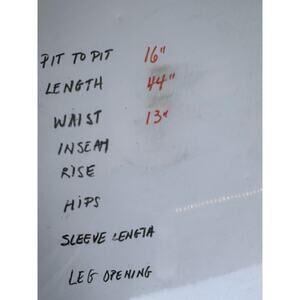 PIT TO PIT 16"
LENGTH 44"
WAIST 13"
INSEAM
RISE
HIPS
SLEEVE LENGTH
LEG OPENING